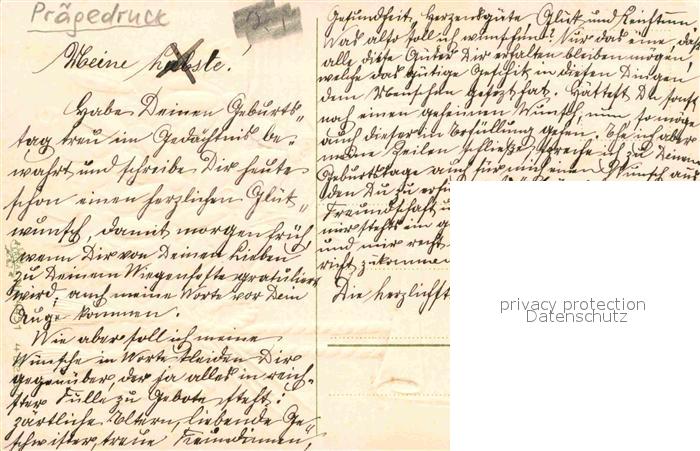 Prägedruck
Meine Liebste.
Habe Deinen Geburts-
tag treu im Gedächtnis be-
wahrt und schreibe Dir heute
schon einen herzlichen Glück-
wunsch, damit morgen früh,
wenn Dir von Deinen Lieben
zu Deinem Wiegenfeste gratuliert
wird, auch meine Worte vor Dein
Auge kommen.
Wie aber soll ich meine
Wünsche in Worte kleiden Dir
gegenüber, der ja alles in reich-
ster Fülle zu Gebote steht:
zärtliche Eltern, liebende Ge-
schwister, treue Freundinnen,
Gesundheit, Herzensgüte, Glück und Reichtum.
Was also soll ich wünschen? Nur das eine, daß
alle diese Güter Dir erhalten bleiben mögen,
welche das gütige Geschick in diesen Dingen
dem Menschen gesetzt hat. Hättest Du sonst
noch einen geheimen Wunsch, nun, so möge
auch dieser in Erfüllung gehen. Ehe ich aber
meine Zeilen schließe, spreche ich zu Deinem
Geburtstage auch für mich einen Wunsch aus
den Du zu
Freundschaft
mir stets ein
und mir recht
recht zukomme
Die herzlichst
privacy protection
Datenschutz